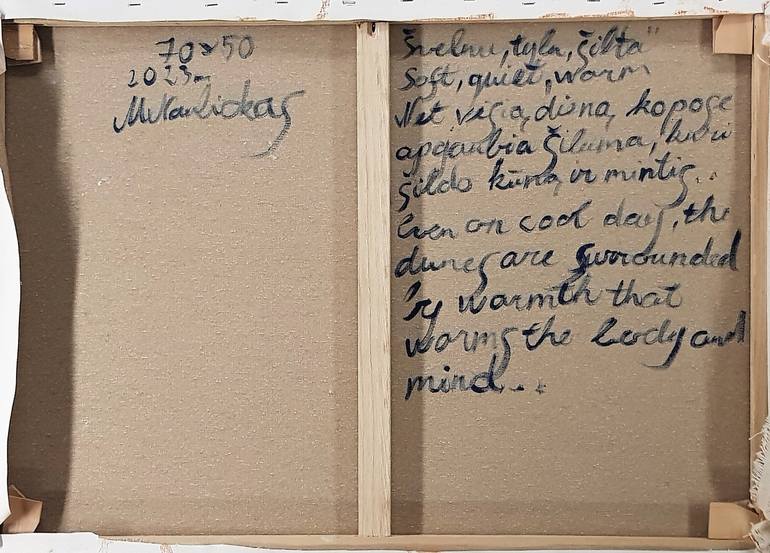 70x50
2023m
Švelnu, tyla, šilta"
Soft, quiet, warm
Net vėsią dieną, kopose
apgaubia šiluma, kuri
šildo kūną ir mintis..
Even on cool days, the
dunes are surrounded
by warmth that
warms the body and
mind...